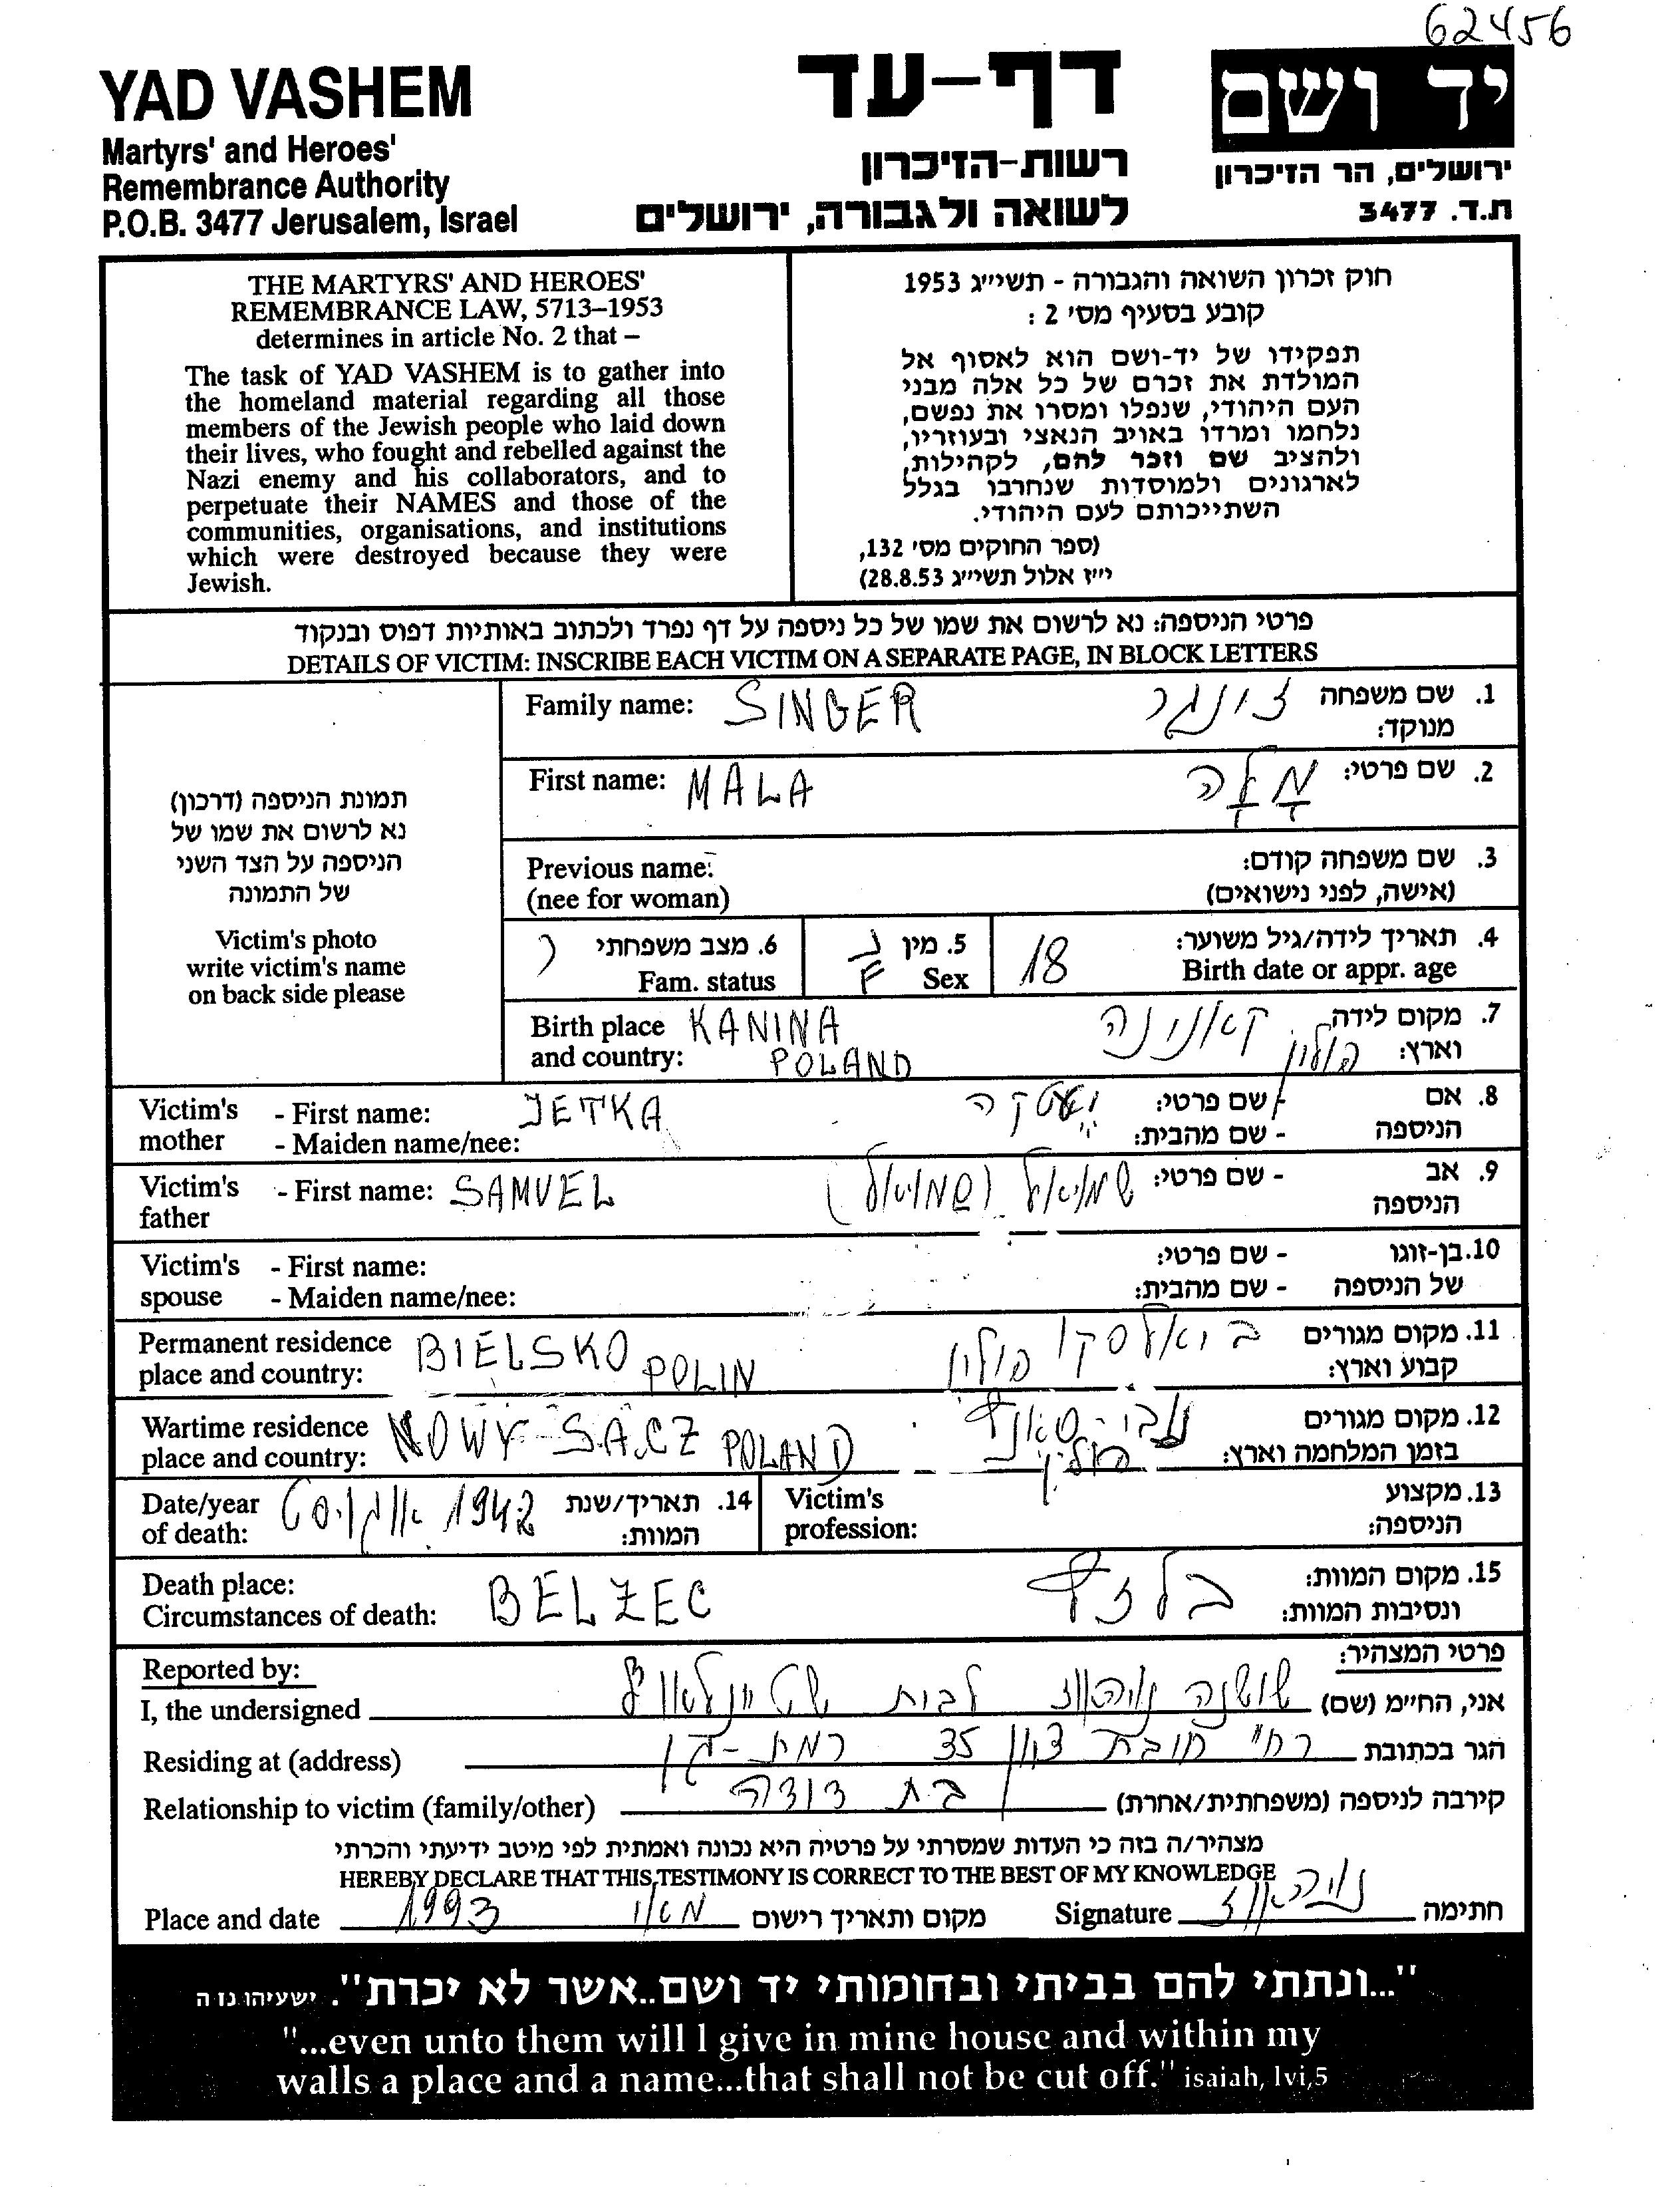 62456
YAD VASHEM
Martyrs' and Heroes'
Remembrance Authority
P.O.B. 3477 Jerusalem, Israel
דף-עד
רשות-הזיכרון
לשואה ולגבורה, ירושלים
יד ושם
ירושלים, הר הזיכרון
ת.ד. 3477
THE MARTYRS' AND HEROES'
REMEMBRANCE LAW, 5713–1953
determines in article No. 2 that –
The task of YAD VASHEM is to gather into
the homeland material regarding all those
members of the Jewish people who laid down
their lives, who fought and rebelled against the
Nazi enemy and his collaborators, and to
perpetuate their NAMES and those of the
communities, organisations, and institutions
which were destroyed because they were
Jewish.
חוק זכרון השואה והגבורה - תשי״ג 1953
קובע בסעיף מס׳ 2 :
תפקידו של יד-ושם הוא לאסוף אל
המולדת את זכרם של כל אלה מבני
העם היהודי, שנפלו ומסרו את נפשם,
נלחמו ומרדו באויב הנאצי ובעוזריו,
ולהציב שם וזכר להם, לקהילות,
לארגונים ולמוסדות שנחרבו בגלל
השתייכותם לעם היהודי.
(ספר החוקים מס׳ 132,
י״ז אלול תשי״ג 28.8.53)
פרטי הניספה: נא לרשום את שמו של כל ניספה על דף נפרד ולכתוב באותיות דפוס ובנקוד
DETAILS OF VICTIM: INSCRIBE EACH VICTIM ON A SEPARATE PAGE, IN BLOCK LETTERS
תמונת הניספה (דרכון)
נא לרשום את שמו של
הניספה על הצד השני
של התמונה
Victim's photo
write victim's name
on back side please
Family name: SINGER זינגר 1. שם משפחה
מנוקד:
First name: MALA מלה 2. שם פרטי:
Previous name: 3. שם משפחה קודם:
(nee for woman) (אישה, לפני נישואים)
6. מצב משפחתי ר 5. מין נ 4. תאריך לידה/גיל משוער: 18
Fam. status Sex F Birth date or appr. age
Birth place KANINA קאנינה 7. מקום לידה
and country: POLAND פולין וארץ:
Victim's - First name: JETKA יעטקה - שם פרטי: 8. אם
mother - Maiden name/nee: - שם מהבית: הניספה
Victim's - First name: SAMUEL - שם פרטי: 9. אב
father הניספה
Victim's - First name: - שם פרטי: 10. בן-זוגו
spouse - Maiden name/nee: - שם מהבית: של הניספה
Permanent residence BIELSKO POLIN ביאלסקו פולין 11. מקום מגורים
place and country: קבוע וארץ:
Wartime residence NOWY-SACZ POLAND נובי-סאנץ 12. מקום מגורים
place and country: פולין בזמן המלחמה וארץ:
Date/year אוגוסט 1942 14. תאריך/שנת Victim's 13. מקצוע
of death: המוות: profession: הניספה:
Death place: BELZEC בלזץ 15. מקום המוות:
Circumstances of death: ונסיבות המוות:
Reported by: פרטי המצהיר:
I, the undersigned אני, החיימ (שם) שושנה נויהאוז לבית
Residing at (address) הגר בכתובת רח׳׳ חובת ציון 35 רמת-גן
Relationship to victim (family/other) קירבה לניספה (משפחתית/אחרת) בת דודה
מצהיר/ה בזה כי העדות שמסרתי על פרטיה היא נכונה ואמתית לפי מיטב ידיעתי והכרתי
HEREBY DECLARE THAT THIS TESTIMONY IS CORRECT TO THE BEST OF MY KNOWLEDGE
Place and date 1993 מאי מקום ותאריך רישום Signature נויהאוז חתימה
"...ונתתי להם בביתי ובחומותי יד ושם..אשר לא יכרת". ישעיהו נו ה
"...even unto them will I give in mine house and within my
walls a place and a name...that shall not be cut off." isaiah, lvi,5